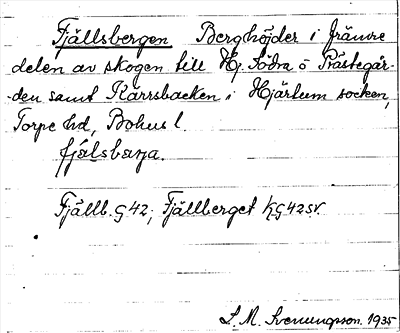 Fjällsbergen Berghöjder i främre
delen av skogen till Hj. Södra o Prästegår-
den samt Karrsbacken i Hjärtum socken,
Torpe hd, Bohus l.
fjälsbærja.
Fjällb. G42; Fjällberget KG42sv.
S. M. Svenungson. 1935